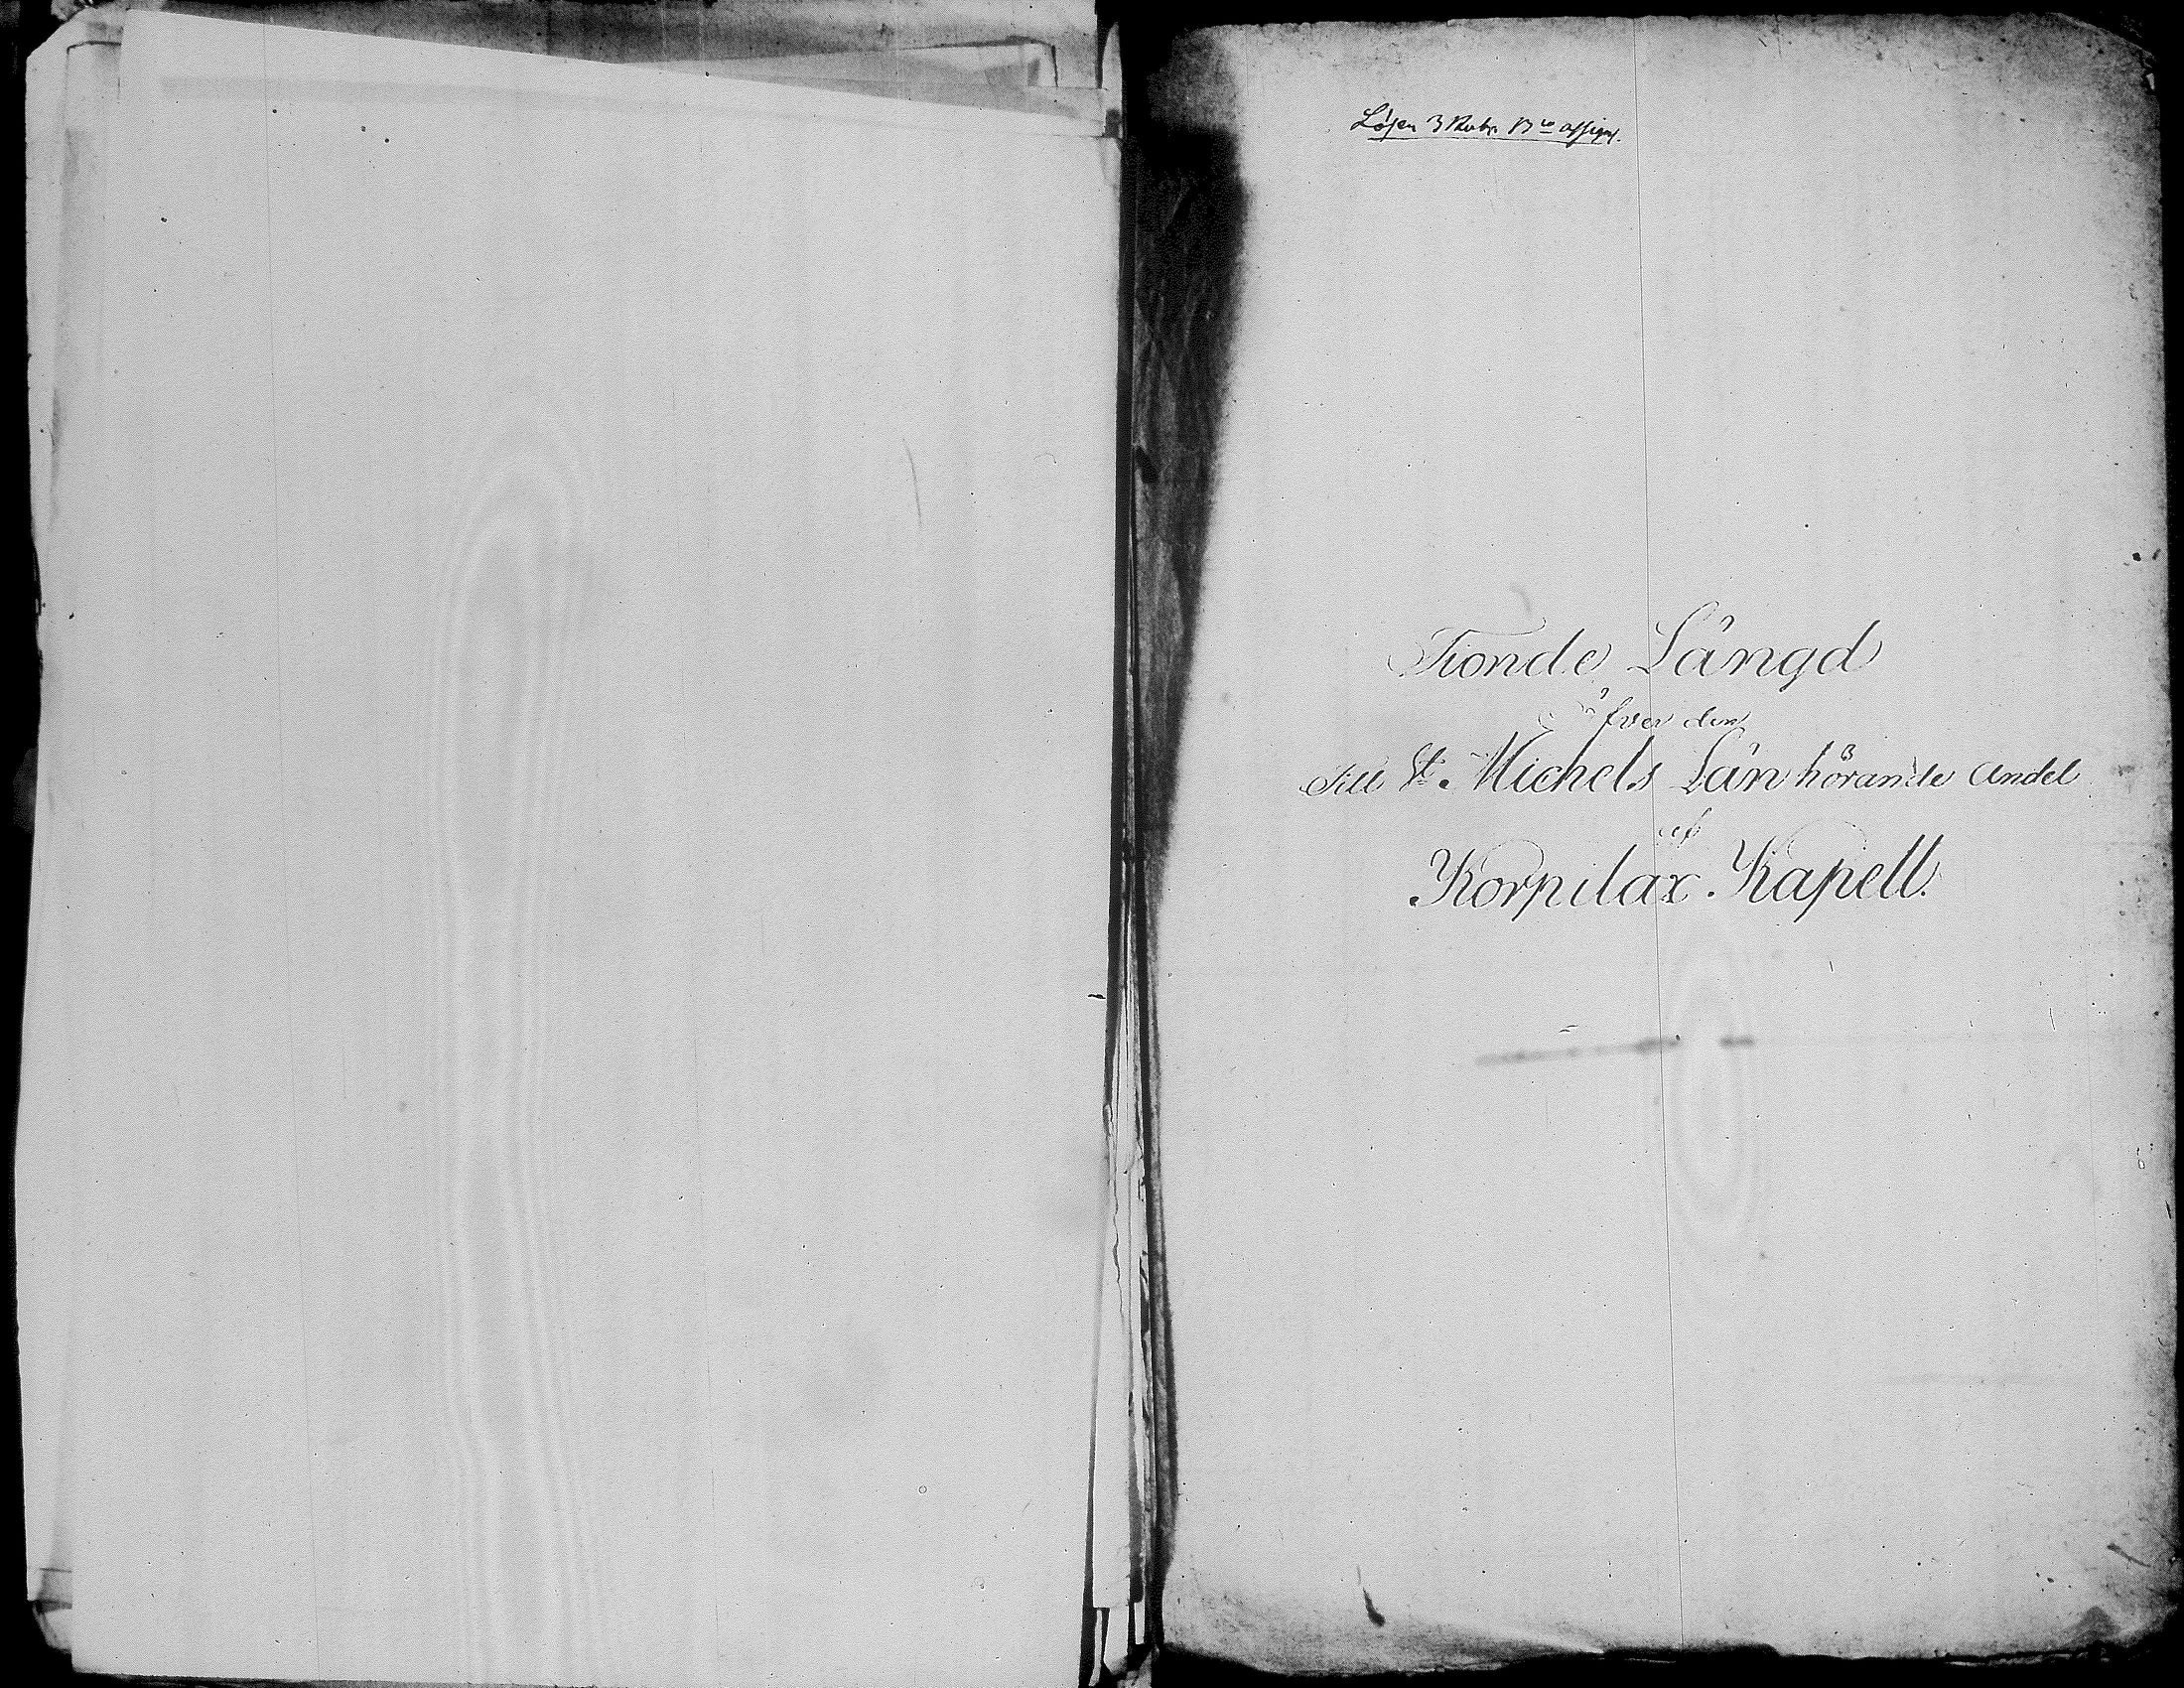 Lösen 3 Rub. B co assign.
Tionde Längd
öfver den
Till St. Michels Län hörande Andel
af
Korpilax Kapell.